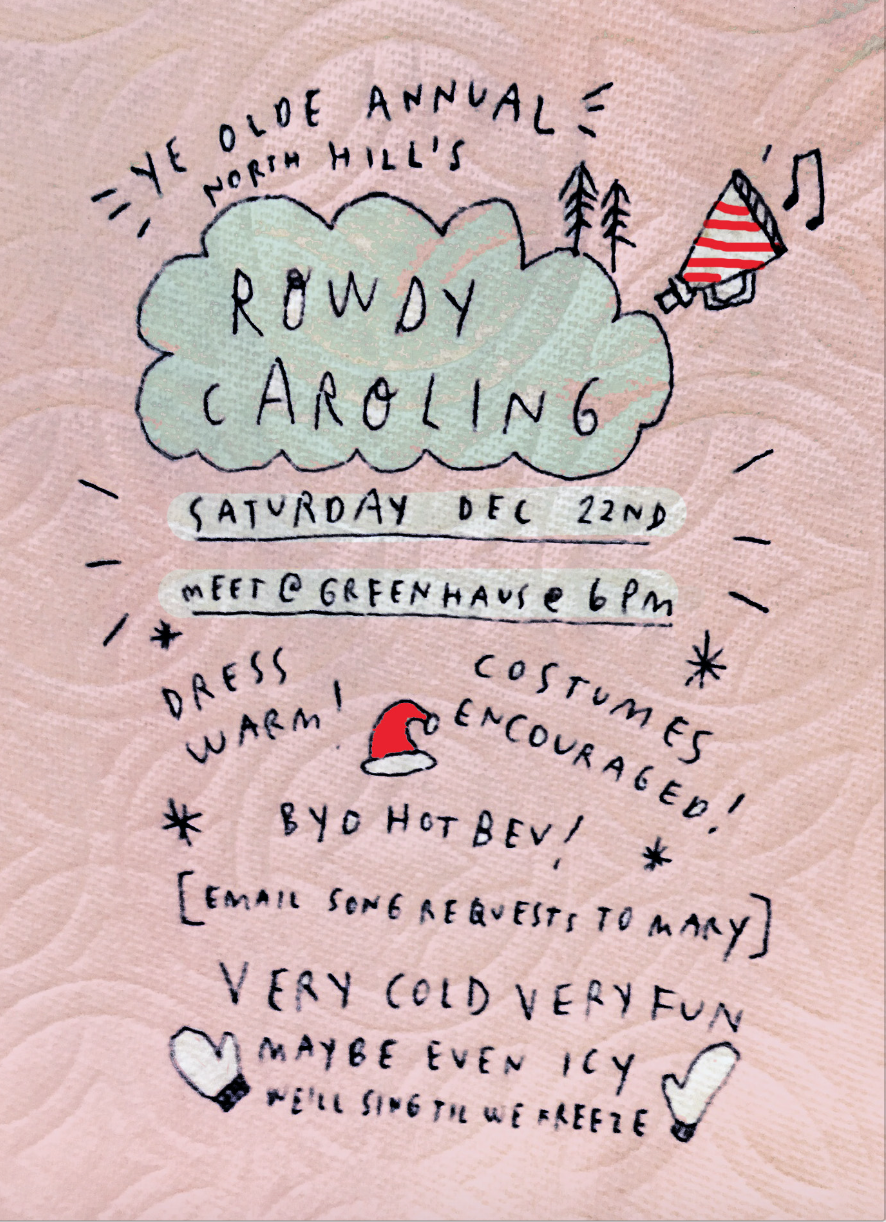 YE OLDE ANNUAL
NORTH HILL'S
ROWDY
CAROLING
SATURDAY DEC 22ND
MEET @ GREENHAUS @ 6 PM
DRESS
WARM!
COSTUMES
ENCOURAGED!
BYO HOT BEV!
[EMAIL SONG REQUESTS TO MARY]
VERY COLD VERY FUN
MAYBE EVEN ICY
WE'LL SING TIL WE FREEZE